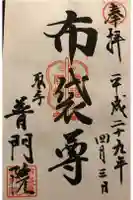 奉拝
平成二十九年
四月三日
布袋尊
聖寺
普門院